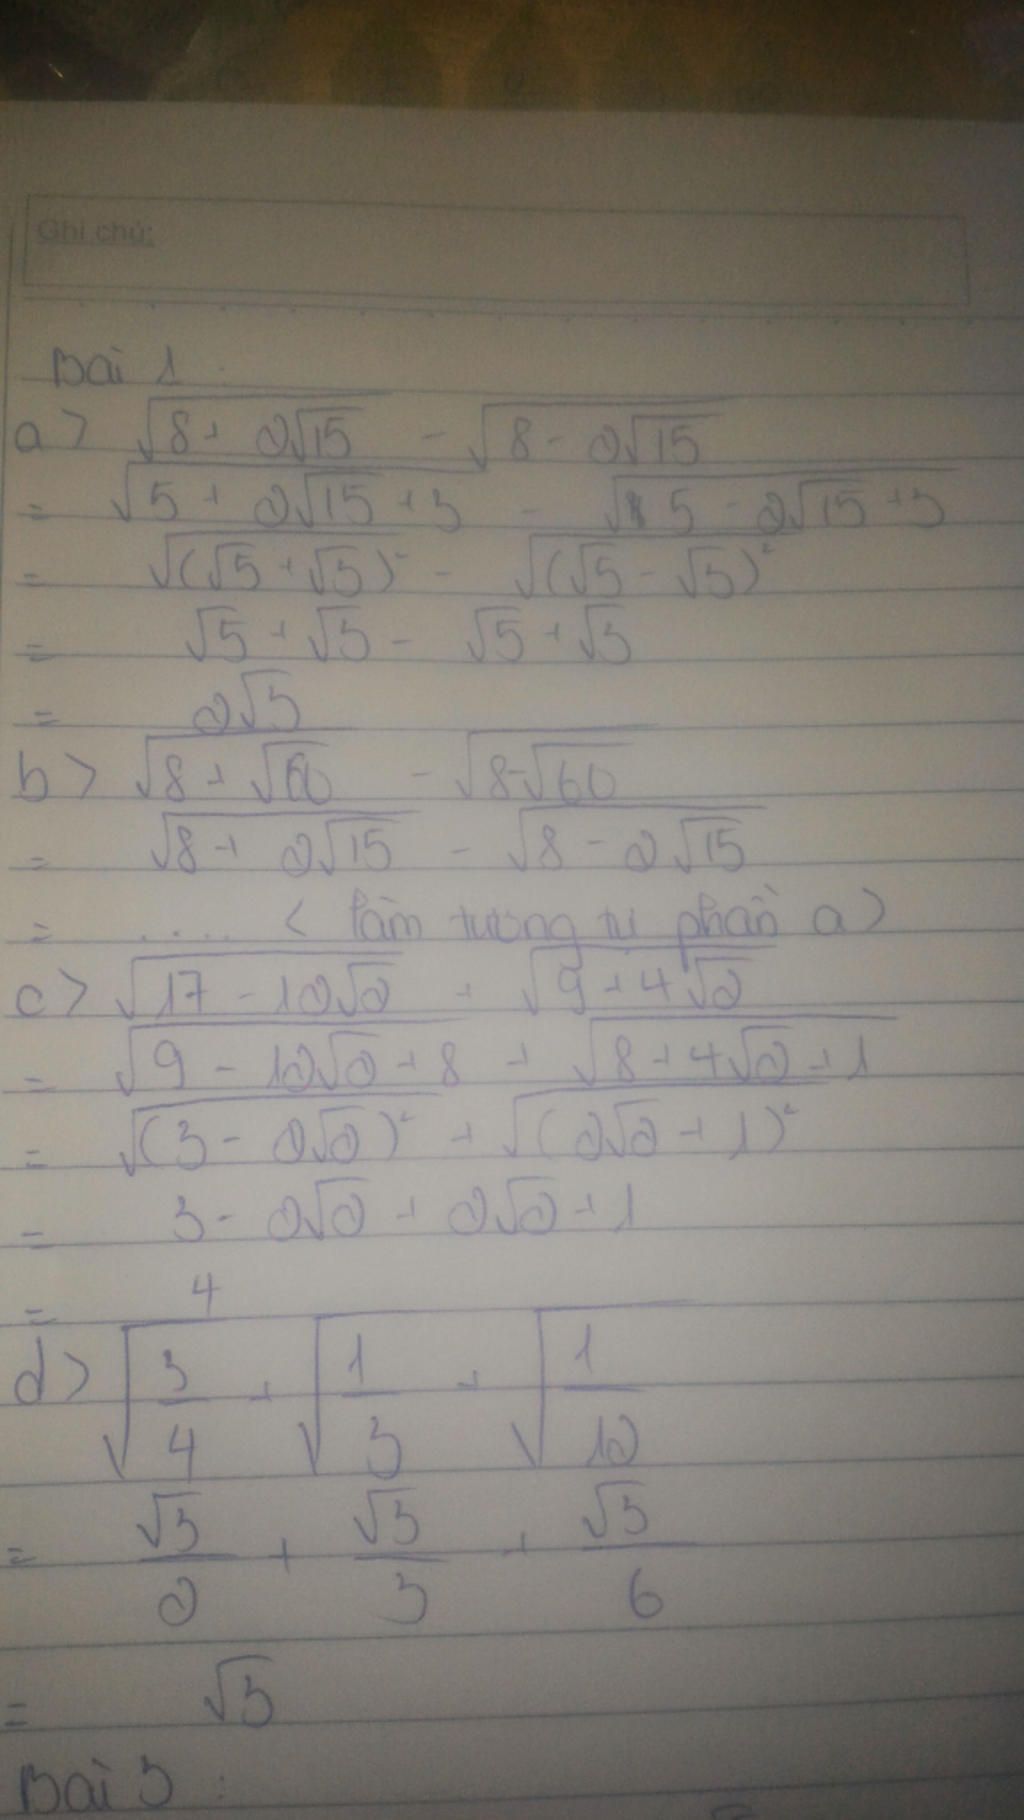 Ghi chú:
Bài 1
a> √(8 + 2√15) - √(8 - 2√15)
= √(5 + 2√15 + 3) - √(5 - 2√15 + 3)
= √((√5 + √3)²) - √((√5 - √3)²)
= √5 + √3 - √5 + √3
= 2√3
b> √(8 + √60) - √(8-√60)
= √(8 + 2√15) - √(8 - 2√15)
= ..... < làm tương tự phần a>
c> √(17 - 12√2) + √(9 + 4√2)
= √(9 - 12√2 + 8) + √(8 + 4√2 + 1)
= √((3 - 2√2)²) + √((2√2 + 1)²)
= 3 - 2√2 + 2√2 + 1
= 4
d> √(3/4) + √(1/3) + √(1/12)
= √3/2 + √3/3 + √3/6
= √3
Bài 3 :